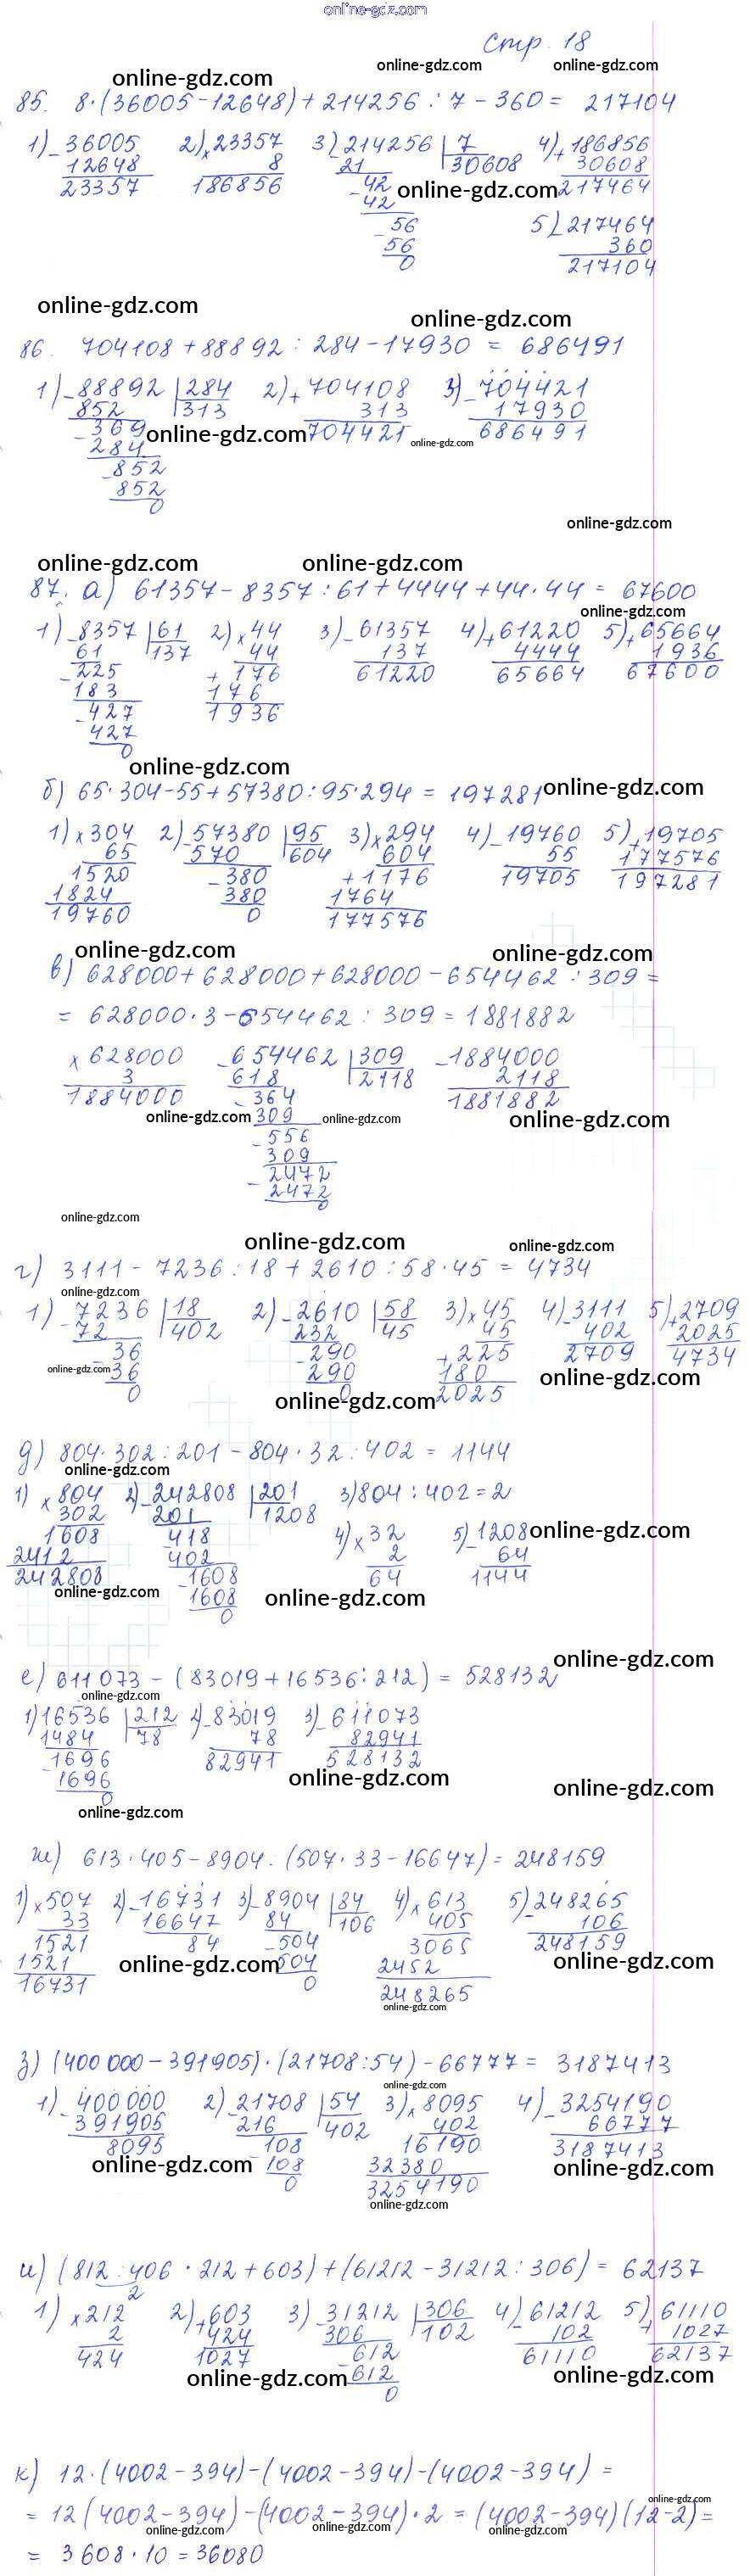 online-gdz.com
Стр. 18
online-gdz.com online-gdz.com online-gdz.com
85. 8·(36005-12648)+214256:7-360= 217104
1) - 36005 2) × 23357 3) - 214256 | 7 4) + 186856
12648 8 21 30608 30608
23357 186856 - 42 online-gdz.com 217464
42
- 56 5) - 217464
56 360
0 217104
online-gdz.com online-gdz.com
86. 704108+88892:284-17930 = 686491
1) - 88892 | 284 2) + 704108 3) - 704421
852 313 313 17930
- 369 online-gdz.com 704421 online-gdz.com 686491
284
- 852
852
0
online-gdz.com
online-gdz.com online-gdz.com
87. а) 61357-8357:61+4444+44·44 = 67600
online-gdz.com
1) - 8357 | 61 2) × 44 3) - 61357 4) + 61220 5) + 65664
61 137 44 137 4444 1936
- 225 + 176 61220 65664 67600
183 176
- 427 1936
427
0
online-gdz.com
б) 65·304-55+57380:95·294 = 197281 online-gdz.com
1) × 304 2) - 57380 | 95 3) × 294 4) - 19760 5) + 19705
65 570 604 604 55 177576
1520 - 380 + 1176 19705 197281
1824 380 1764
19760 0 177576
online-gdz.com online-gdz.com
в) 628000+628000+628000-654462:309=
= 628000·3-654462:309=1881882
× 628000 - 654462 | 309 - 1884000
3 618 2118 2118
1884000 - 364 1881882
online-gdz.com 309 online-gdz.com online-gdz.com
- 556
309
- 2472
2472
0
online-gdz.com
online-gdz.com online-gdz.com
г) 3111-7236:18+2610:58·45 = 4734
online-gdz.com
1) - 7236 | 18 2) - 2610 | 58 3) × 45 4) - 3111 5) + 2709
72 402 232 45 45 402 2025
- 36 - 290 + 225 2709 4734
online-gdz.com 36 290 180 online-gdz.com
0 0 2025
online-gdz.com
д) 804·302:201-804·32:402 = 1144
online-gdz.com
1) × 804 2) - 242808 | 201 3) 804:402=2
302 201 1208
1608 - 418 4) × 32 5) - 1208 online-gdz.com
2412 402 2 64
242808 - 1608 64 1144
online-gdz.com 1608 online-gdz.com
0
online-gdz.com
е) 611073-(83019+16536:212) = 528132
online-gdz.com
1) 16536 | 212 2) - 83019 3) - 611073
1484 78 78 82941
- 1696 82941 528132
1696 online-gdz.com online-gdz.com
0
online-gdz.com
ж) 613·405-8904:(507·33-16647)=248159
1) × 507 2) - 16731 3) - 8904 | 84 4) × 613 5) - 248265
33 16647 84 106 405 106
1521 84 - 504 3065 248159
1521 online-gdz.com 504 2452 online-gdz.com
16731 0 248265
online-gdz.com
з) (400000-391905)·(21708:54)-66777= 3187413
online-gdz.com
1) - 400000 2) - 21708 | 54 3) × 8095 4) - 3254190
391905 216 402 402 66777
8095 - 108 16190 3187413
online-gdz.com 108 32380 online-gdz.com
0 3254190
online-gdz.com
и) (812:406·212+603)+(61212-31212:306)= 62137
2
1) × 212 2) + 603 3) - 31212 | 306 4) - 61212 5) + 61110
2 424 306 102 102 1027
424 1027 - 612 61110 62137
online-gdz.com 612 online-gdz.com
0
к) 12·(4002-394)-(4002-394)-(4002-394) =
online-gdz.com
= 12(4002-394)-(4002-394)·2 = (4002-394)(12-2)=
online-gdz.com online-gdz.com online-gdz.com
= 3608·10=36080